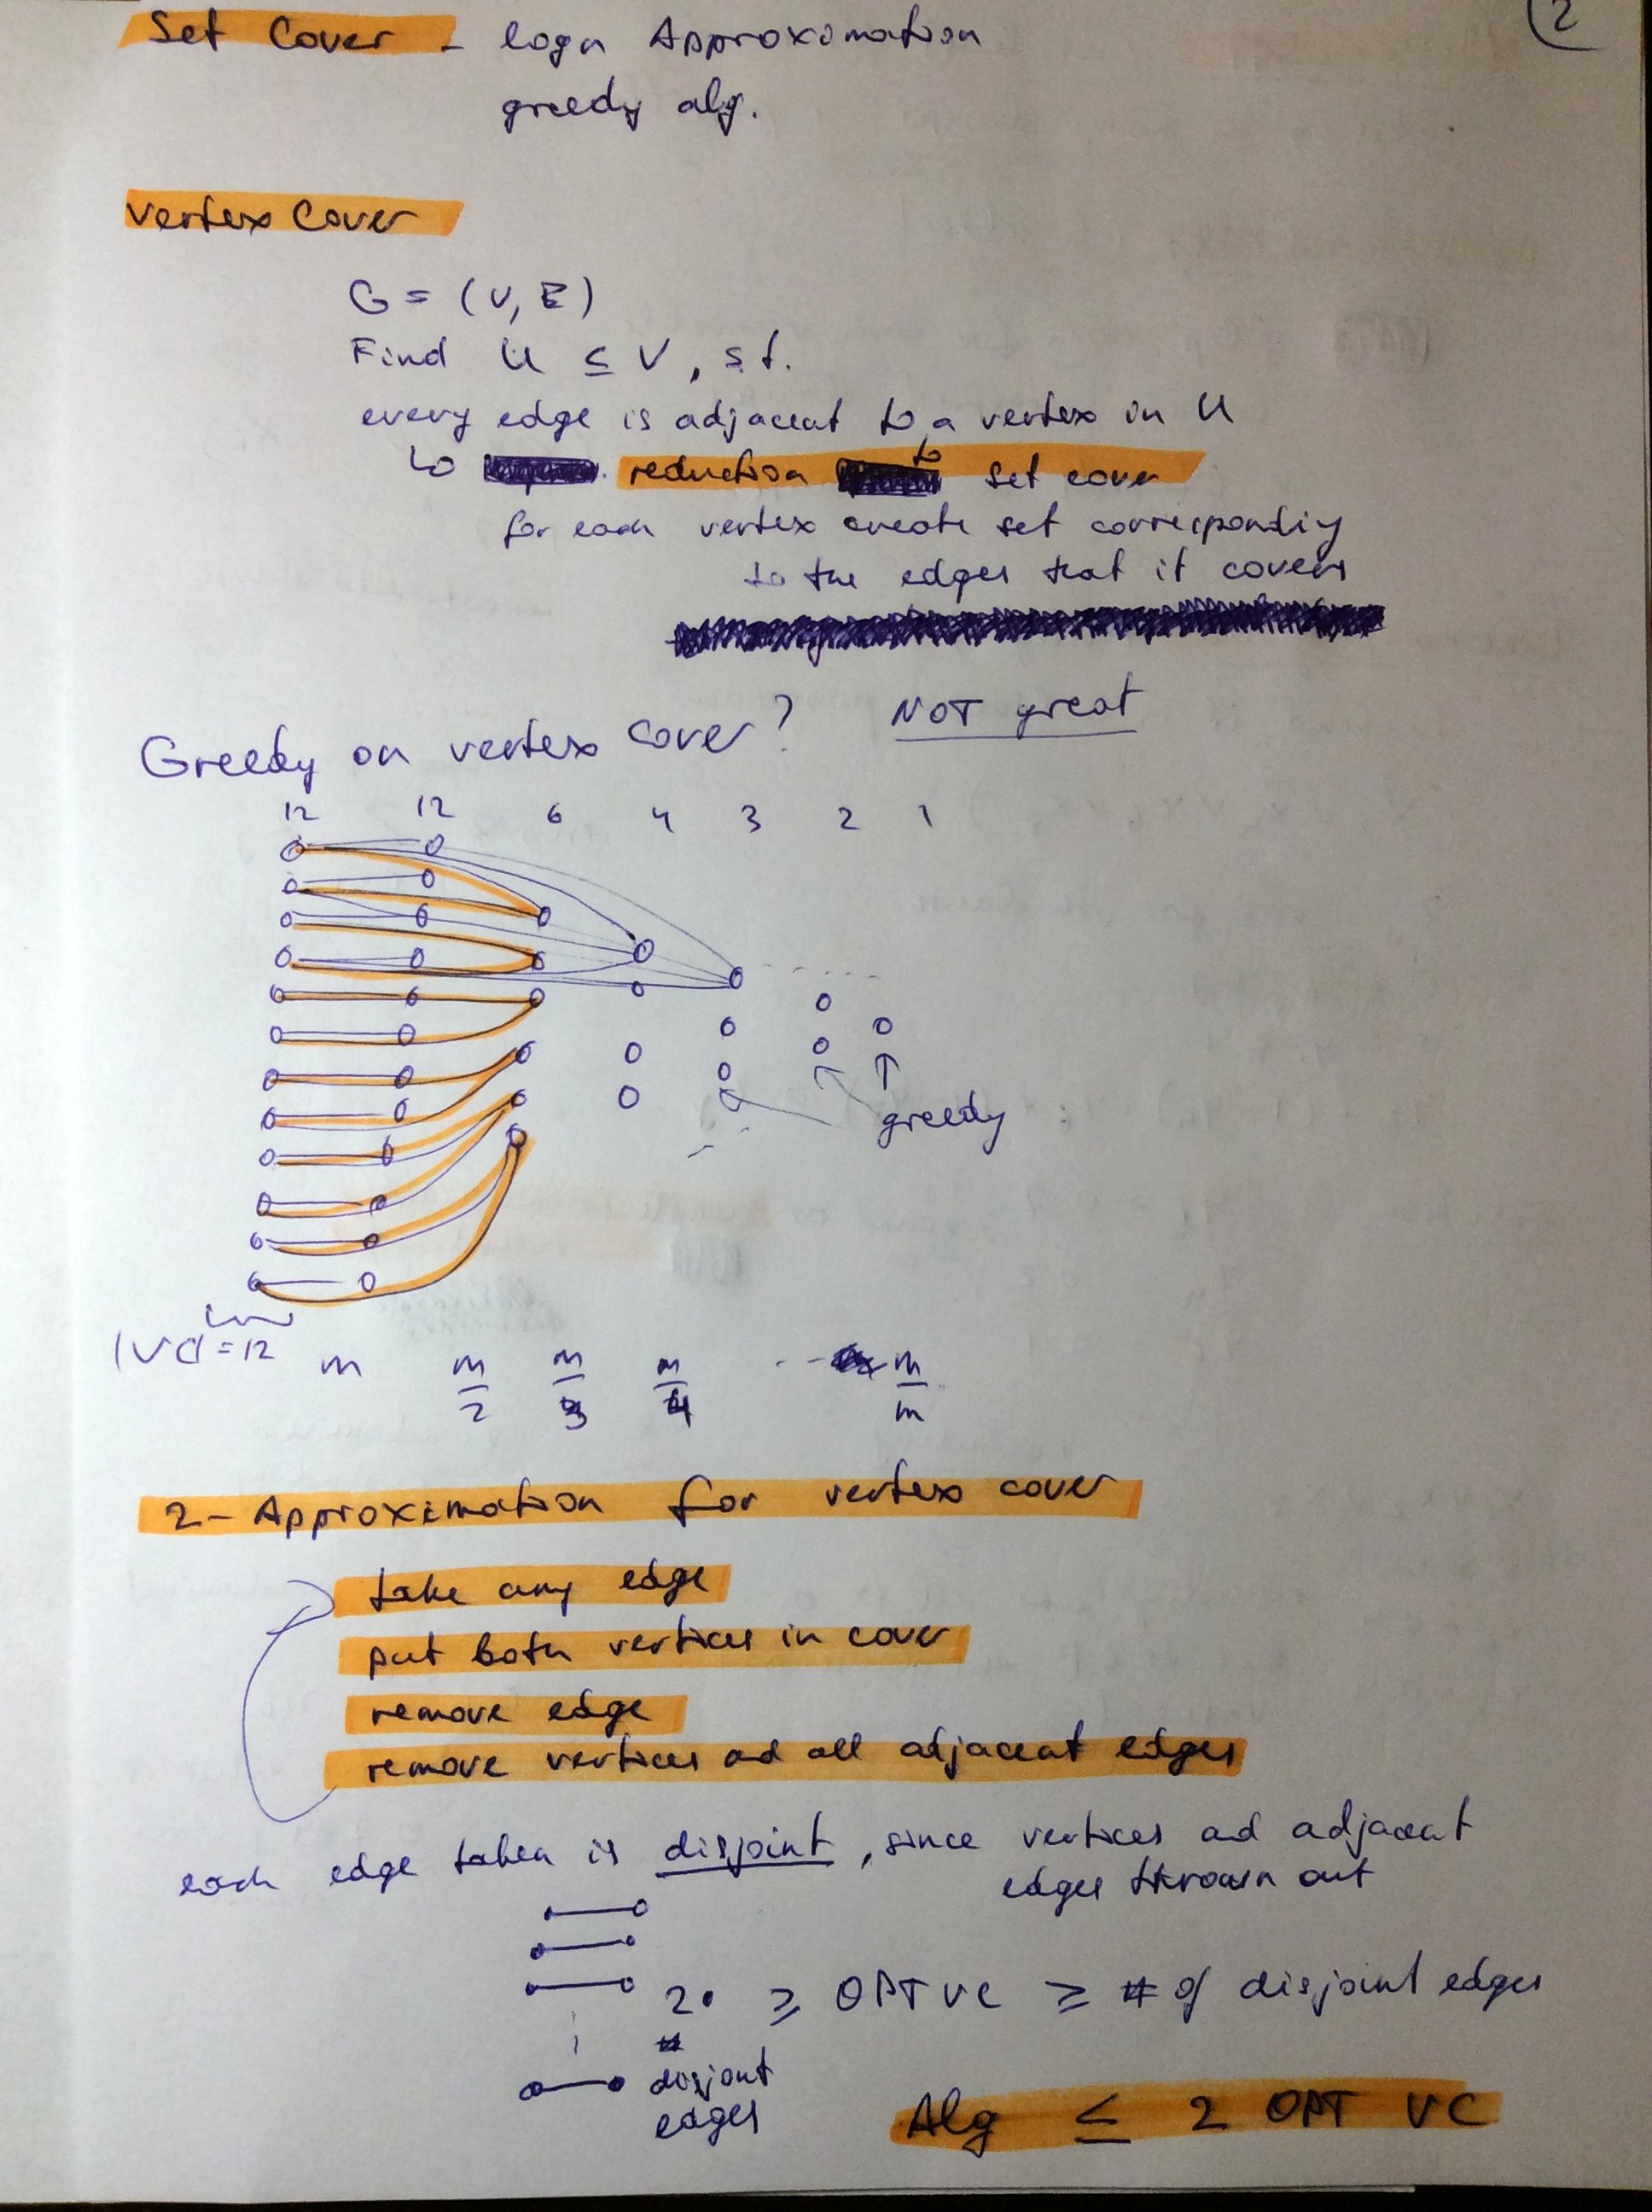 2
Set Cover - logn Approximation
greedy alg.
Vertex Cover
G = (V, E)
Find U ⊆ V, s.t.
every edge is adjacent to a vertex in U
↳ reduction to set cover
for each vertex create set correspondig
to the edges that it covers
Greedy on vertex cover? NOT great
12 12 6 4 3 2 1
greedy
|VC|=12 m m/2 m/3 m/4 --- m/m
2-Approximation for vertex cover
take any edge
put both vertices in cover
remove edge
remove vertices ad all adjacent edges
each edge taken is disjoint, since vertices ad adjacent
edges thrown out
2 · ≥ OPT VC ≥ # of disjoint edges
#
disjoint
edges
Alg ≤ 2 OPT VC